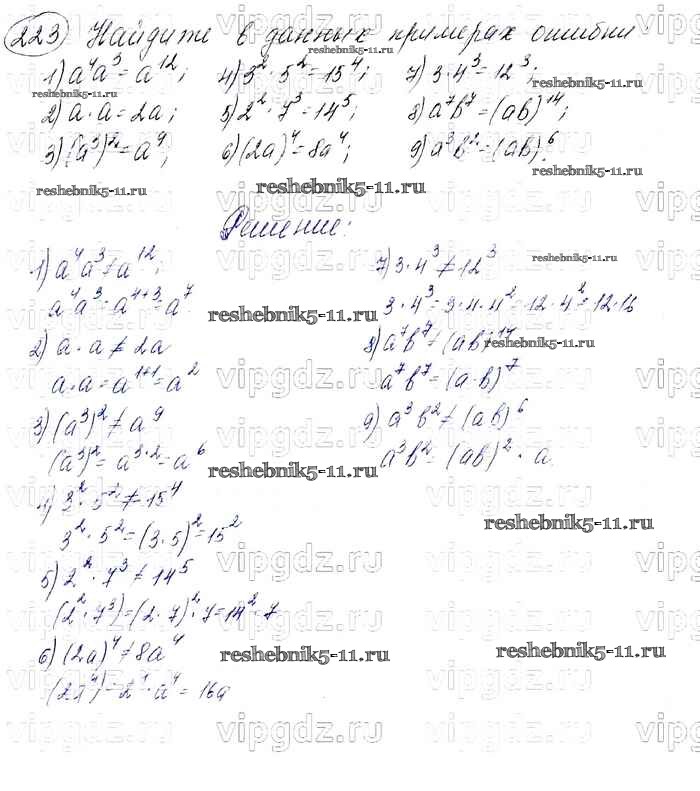 223 Найдите в данных примерах ошибки
1) a⁴a³=a¹²; 4) 3²·5²=15⁴; 7) 3·4³=12³;
2) a·a=2a; 5) 2²·7³=14⁵; 8) a⁷b⁷=(ab)¹⁴;
3) (a³)²=a⁹; 6) (2a)⁴=8a⁴; 9) a³b²=(ab)⁶
Решение:
1) a⁴a³≠a¹²;
a⁴a³=a⁴⁺³=a⁷
2) a·a≠2a
a·a=a¹⁺¹=a²
3) (a³)²≠a⁹
(a³)²=a³·²=a⁶
4) 3²·5²≠15⁴
3²·5²=(3·5)²=15²
5) 2²·7³≠14⁵
(2²·7³)=(2·7)²·7=14²·7
6) (2a)⁴≠8a⁴
(2a⁴)=2⁴·a⁴=16a
7) 3·4³≠12³
3·4³=3·4·4²=12·4²=12·16
8) a⁷b⁷≠(ab)¹⁴
a⁷b⁷=(a·b)⁷
9) a³b²≠(ab)⁶
a³b²=(ab)²·a
reshebnik5-11.ru
vipgdz.ru